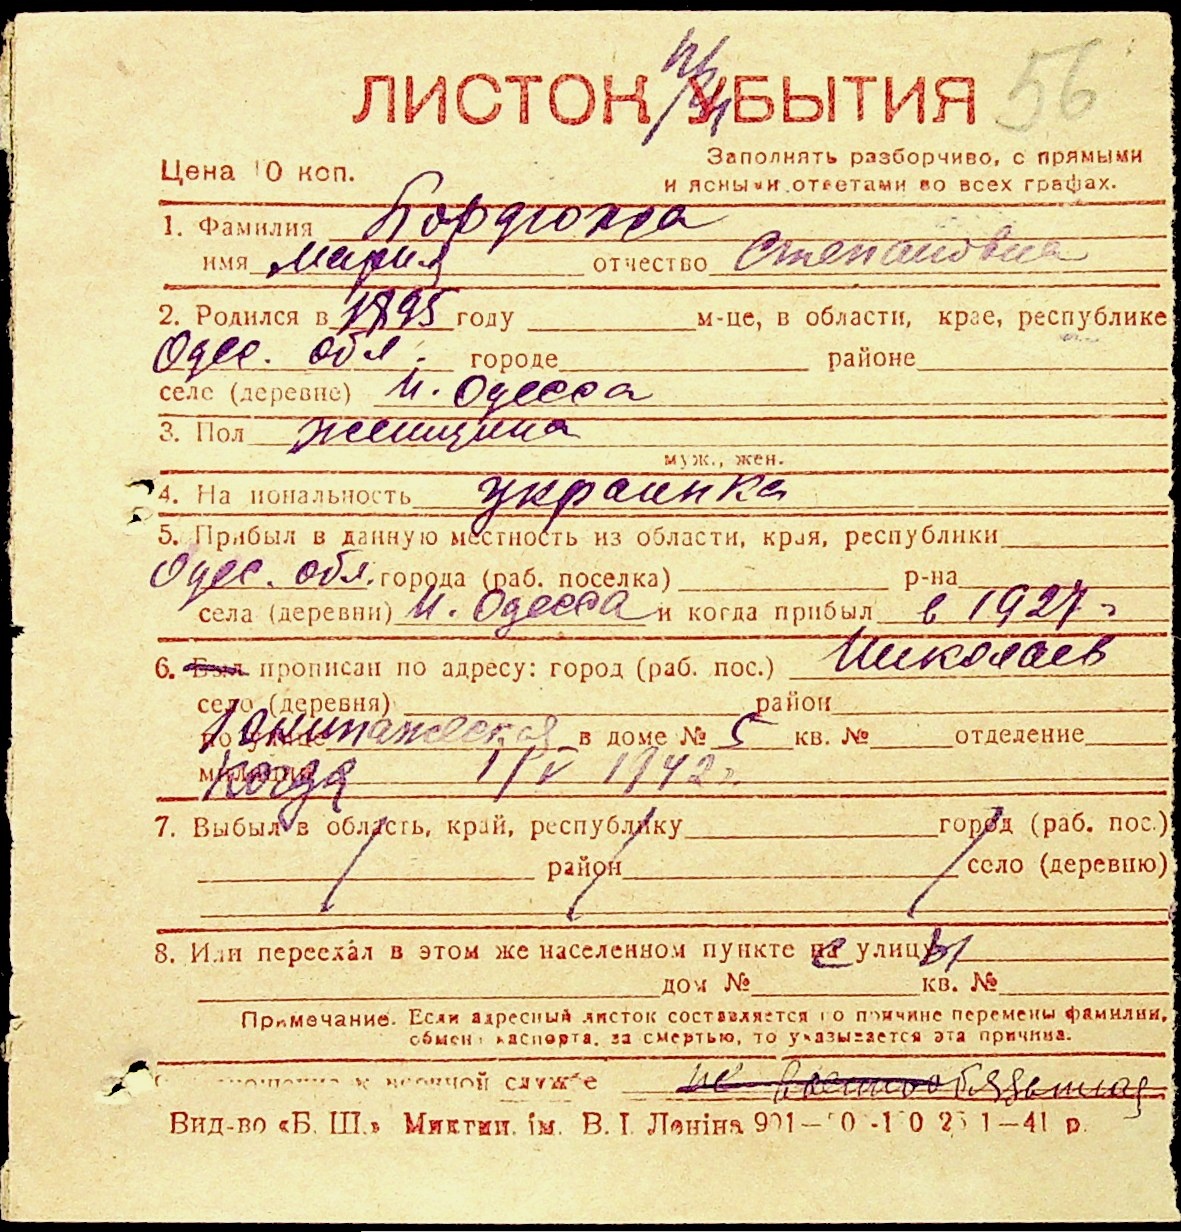 ЛИСТОК УБЫТИЯ 56
Цена 10 коп.
Заполнять разборчиво, с прямыми
и ясными ответами во всех графах.
1. Фамилия
имя Мария отчество Степановна
2. Родился в 1895 году м-це, в области, крае, республике
Одес. обл. городе районе
селе (деревне) Н. Одесса
3. Пол женщина
муж., жен.
4. Национальность украинка
5. Прибыл в данную местность из области, края, республики
Одес. обл. города (раб. поселка) р-на
села (деревни) Н. Одесса и когда прибыл в 1927 г
6. Был прописан по адресу: город (раб. пос.) Николаев
село (деревня) район
по улице в доме № 5 кв. № отделение
милиции Когда 1/IV 1942 г.
7. Выбыл в область, край, республику город (раб. пос.)
район село (деревню)
8. Или переехал в этом же населенном пункте с улицы
дом № кв. №
Примечание. Если адресный листок составляется по причине перемены фамилии,
обмена паспорта, за смертью, то указывается эта причина.
отношение к военной службе не военнообязанная
Вид-во «Б. Ш.» Миктип. ім. В. І. Леніна 1—41 р.